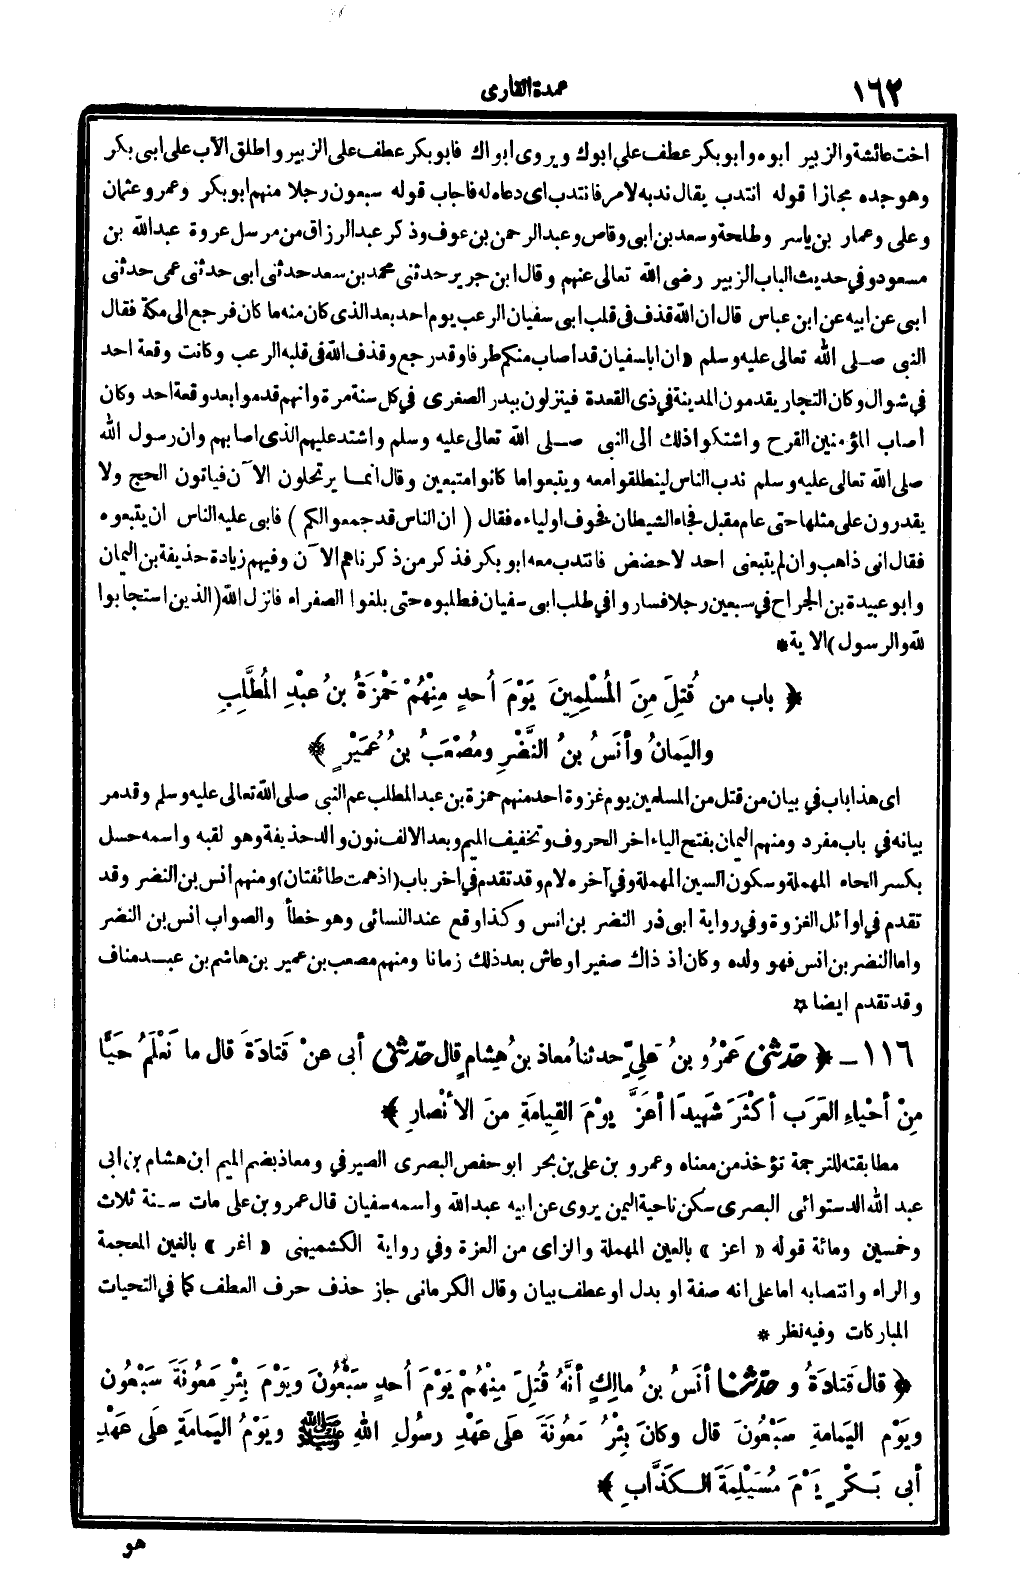 ١٦٢
عمدة القارى
اخت عائشة والزبير ابوه وابو بكر عطف على ابوك ويروى ابواك فابو بكر عطف على الزبير واطلق الآب على ابى بكر
وهو جده مجازا قوله انتدب يقال ندبه لامر فانتدب اى دعاه له فاجاب قوله سبعون رجلا منهم ابو بكر وعمر وعثمان
وعلى وعمار بن ياسر وطلحة وسعد بن ابى وقاص وعبد الرحمن بن عوف وذكر عبد الرزاق من مرسل عروة عبد الله بن
مسعود وفي حديث الباب الزبير رضى الله تعالى عنهم وقال ابن جرير حدثنى محمد بن سعد حدثنى ابى حدثنى عمى حدثنى
ابى عن ابيه عن ابن عباس قال ان الله قذف فى قلب ابى سفيان الرعب يوم احد بعد الذى كان منه ما كان فرجع الى مكة فقال
النبى صلى الله تعالى عليه وسلم «ان ابا سفيان قد اصاب منكم طرفا وقد رجع وقذف الله فى قلبه الرعب وكانت وقعة احد
في شوال وكان التجار يقدمون المدينة في ذى القعدة فينزلون ببدر الصغرى في كل سنة مرة وانهم قدموا بعد وقعة احد وكان
أصاب المؤمنين القرح واشتكوا ذلك الى النبى صلى الله تعالى عليه وسلم واشتد عليهم الذى اصابهم وان رسول الله
صلى الله تعالى عليه وسلم ندب الناس لينطلقوا معه ويتبعوا ما كانوا متبعين وقال انما يرتحلون الآن فياتون الحج ولا
يقدرون على مثلها حتى عام مقبل فجاء الشيطان فخوف اولياءه فقال ( ان الناس قد جمعوا لكم ) فابى عليه الناس ان يتبعوه
فقال انى ذاهب وان لم يتبعنى احد لاحضض فانتدب معه ابو بكر فذكر من ذكرناهم الآن وفيهم زيادة حذيفة بن اليمان
وابو عبيدة بن الجراح في سبعين رجلا فساروا في طلب ابى سفيان فطلبوه حتى بلغوا الصفراء فانزل الله (الذين استجابوا
لله والرسول) الاية *
﴿ باب من قُتِلَ مِنَ المُسْلِمِينَ يَوْمَ أُحدٍ مِنْهُمْ حَمْزَةُ بنُ عبْدِ المُطَّلِبِ
واليَمانُ وأنَسُ بنُ النَّضْرِ ومُصْعَبُ بنُ عُمَيْرٍ ﴾
اى هذا باب في بيان من قتل من المسلمين يوم غزوة احد منهم حمزة بن عبد المطلب عم النبى صلى الله تعالى عليه وسلم وقد مر
بيانه في باب مفرد ومنهم اليمان بفتح الياء اخر الحروف وتخفيف الميم وبعد الالف نون والد حذيفة وهو لقبه واسمه حسل
بكسر الحاء المهملة وسكون السين المهملة وفي آخره لام وقد تقدم في اخر باب (اذ همت طائفتان) ومنهم أنس بن النضر وقد
تقدم في اوائل الغزوة وفي رواية ابى ذر النضر بن انس وكذا وقع عند النسائى وهو خطأ والصواب انس بن النضر
واما النضر بن انس فهو ولده وكان اذ ذاك صغيرا وعاش بعد ذلك زمانا ومنهم مصعب بن عمير بن هاشم بن عبد مناف
وقد تقدم ايضا *
١١٦ ـ ﴿ حدّثنى عَمْرُو بنُ عَلِيٍّ حدثنا مُعاذ بنُ هِشامٍ قال حدّثنى أبى عنْ قَتادَةَ قال ما نَعْلَمُ حَيًّا
مِنْ أحْياءِ العَرَب أكْثَرَ شَهِيدًا أعَزَّ يوْمَ القِيامَةِ منَ الأنْصارِ ﴾
مطابقته للترجمة تؤخذ من معناه وعمرو بن على بن بحر ابو حفص البصرى الصيرفي ومعاذ بضم الميم ابن هشام بن ابى
عبد الله الدستوائى البصرى سكن ناحية اليمن يروى عن ابيه عبد الله واسمه سفيان قال عمرو بن على مات سنة ثلاث
وخمسين ومائة قوله « اعز » بالعين المهملة والزاى من العزة وفي رواية الكشميهنى « اغر » بالغين المعجمة
والراء وانتصابه اما على انه صفة او بدل او عطف بيان وقال الكرمانى جاز حذف حرف العطف كما في التحيات
المباركات وفيه نظر *
﴿ قال قَتادَةُ وحدّثنا أنَسُ بنُ مالِكٍ أنَّهُ قُتِلَ مِنْهُمْ يَوْمَ أُحدٍ سَبْعُونَ ويَوْمَ بِئْرِ مَعُونَةَ سَبْعُون
ويَوْم اليَمامةِ سَبْعُونَ قال وكانَ بِئْرُ مَعُونَةَ علَى عَهْدِ رسُولِ اللهِ ﷺ ويَوْمُ اليَمامَةِ علَى عَهْدِ
أبى بَكْرٍ يَوْمَ مُسَيْلِمَةَ الكَذَّابِ ﴾
هو